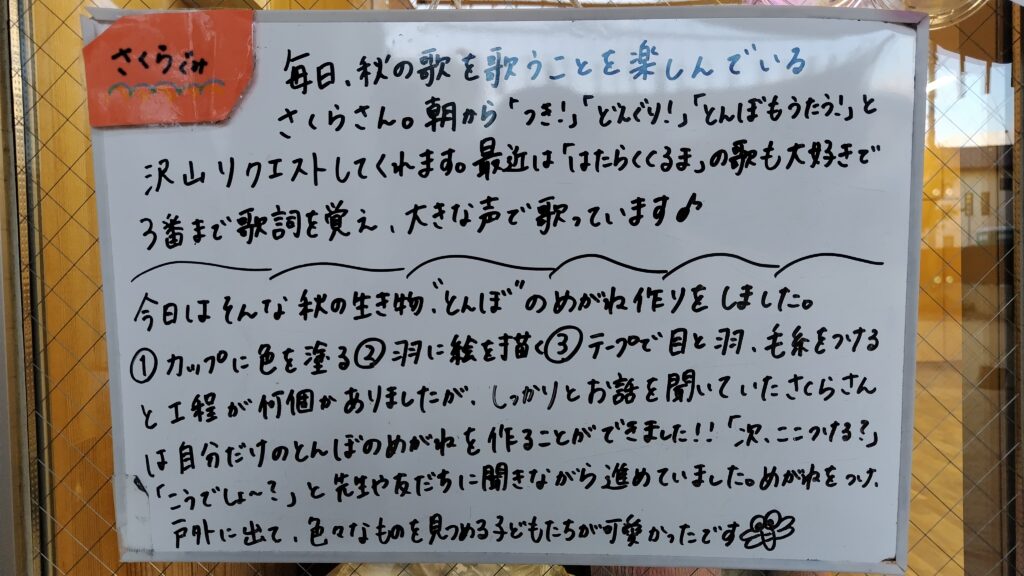 さくらぐみ
毎日、秋の歌を歌うことを楽しんでいる
さくらさん。朝から「つき！」「どんぐり！」「とんぼもうたう！」と
沢山リクエストしてくれます。最近は「はたらくくるま」の歌も大好きで
3番まで歌詞を覚え、大きな声で歌っています♪
今日はそんな秋の生き物、"とんぼ"のめがね作りをしました。
①カップに色を塗る②羽に絵を描く③テープで目と羽、毛糸をつける
と工程が何個かありましたが、しっかりとお話を聞いていたさくらさん
は自分だけのとんぼのめがねを作ることができました!!「次、ここつける？」
「こうでしょ〜？」と先生や友だちに聞きながら進めていました。めがねをつけ、
戸外に出て、色々なものを見つめる子どもたちが可愛かったです